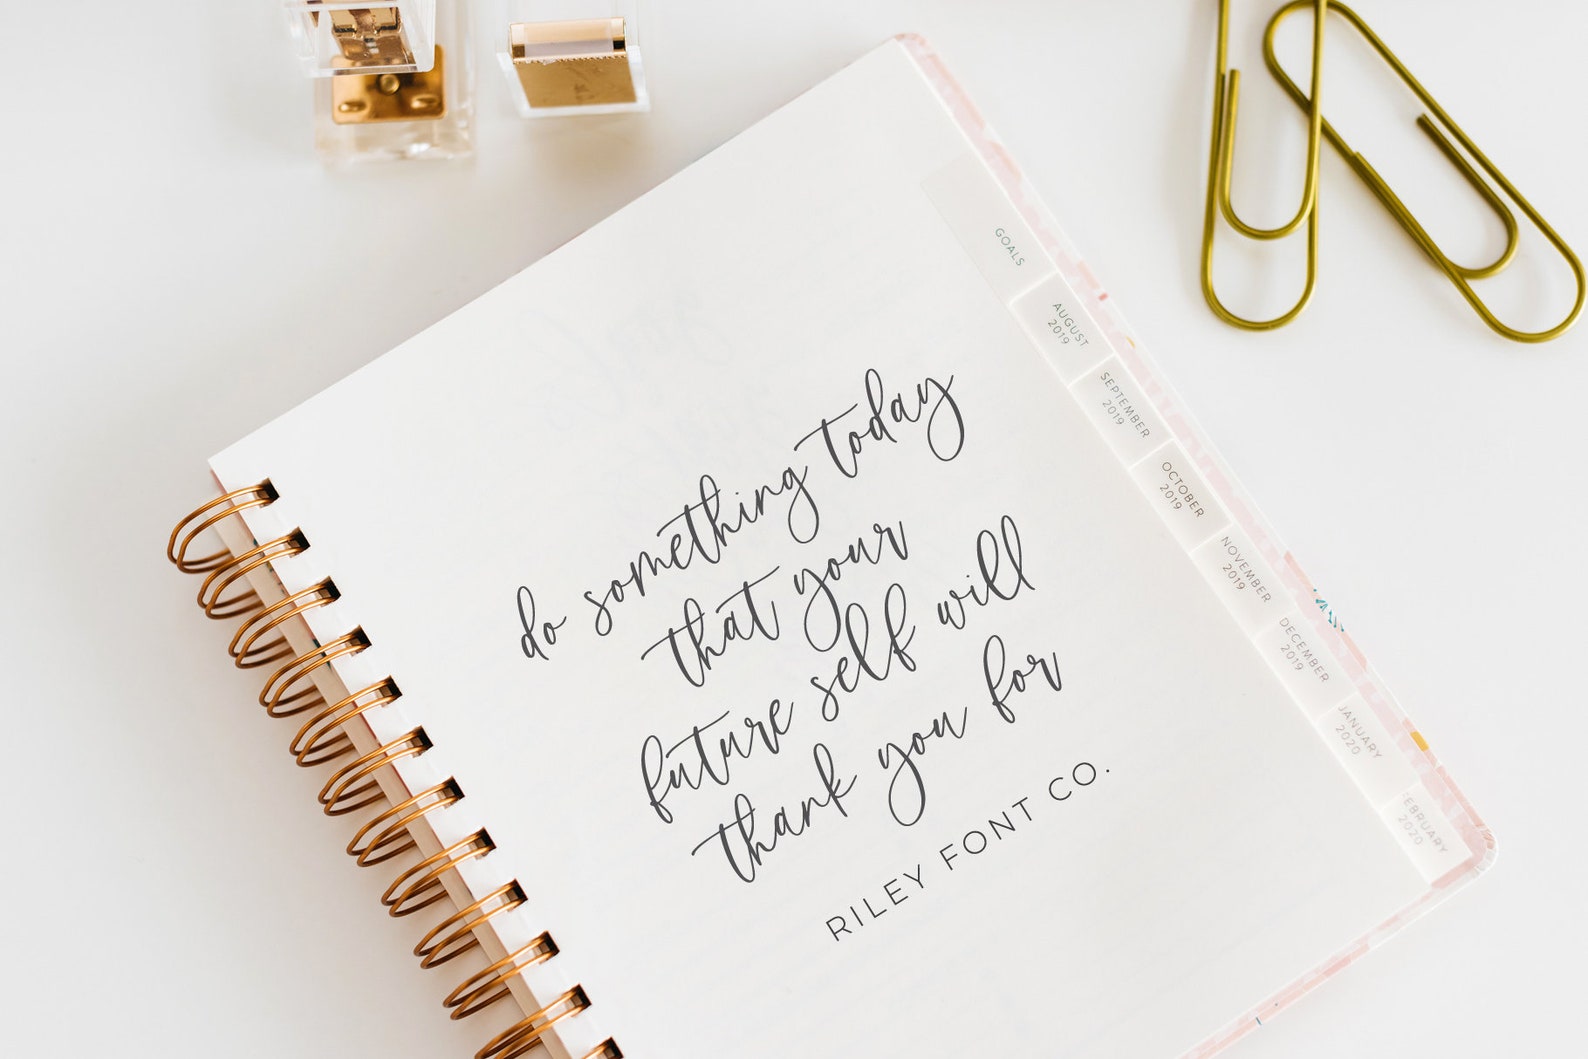 do something today
that your
future self will
thank you for
RILEY FONT CO.
GOALS
AUGUST
2019
SEPTEMBER
2019
OCTOBER
2019
NOVEMBER
2019
DECEMBER
2019
JANUARY
2020
FEBRUARY
2020